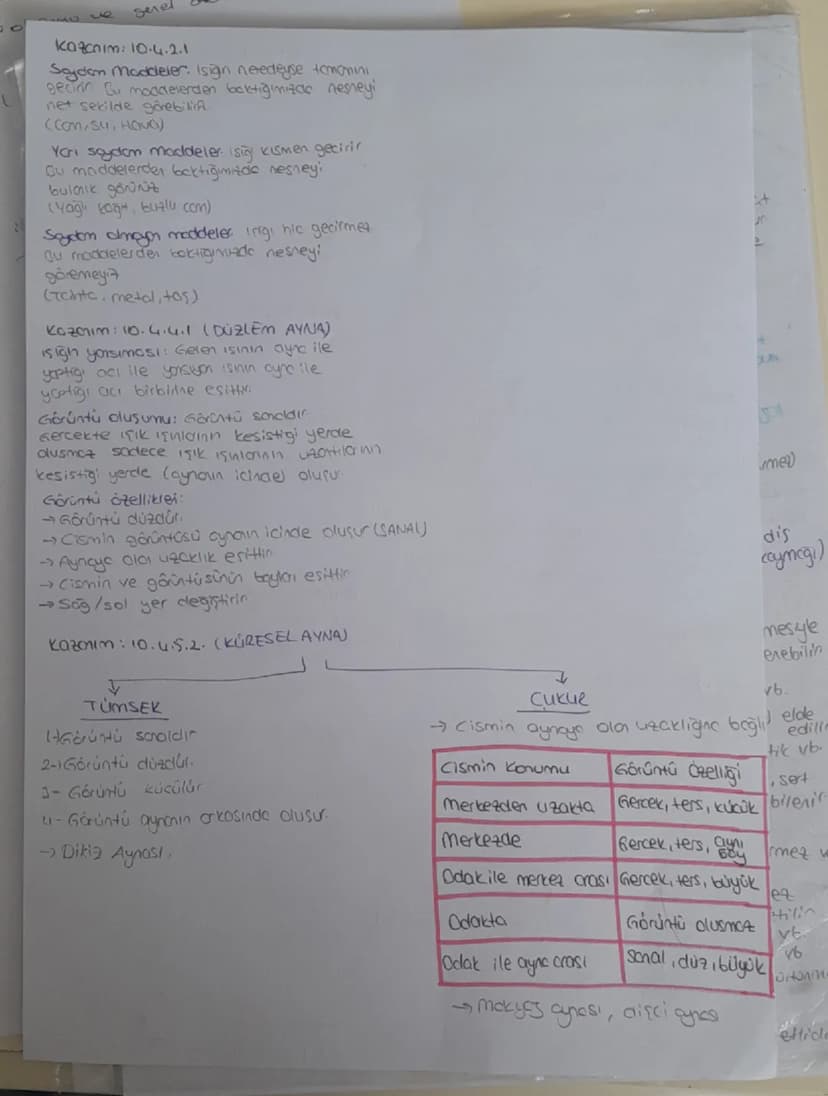 ve genel
Kazanım: 10.4.2.1
Saydam Maddeler: Işığın neredeyse tamamını
geçirir. Bu maddelerden baktığımızda nesneyi
net şekilde görebiliriz
(Cam, su, Hava)
Yarı saydam maddeler: ışığı kısmen geçirir
Bu maddelerden baktığımızda nesneyi
bulanık görürüz
(Yağlı kağıt, buzlu cam)
Saydam olmayan maddeler: ışığı hiç geçirmez
Bu maddelerden baktığımızda nesneyi
göremeyiz
(Tahta, metal, taş)
Kazanım: 10.4.4.1 (DÜZLEM AYNA)
Işığın yansıması: Gelen ışının ayna ile
yaptığı açı ile yansıyan ışının ayna ile
yaptığı açı birbirine eşittir.
Görüntü oluşumu: Görüntü sanaldır
Gerçekte ışık ışınlarının kesiştiği yerde
oluşmaz sadece ışık ışınlarının uzantılarının
kesiştiği yerde (aynanın içinde) oluşur.
Görüntü özellikleri:
→ Görüntü düzdür.
→ Cismin görüntüsü aynanın içinde oluşur (SANAL)
→ Aynaya olan uzaklık eşittir
→ Cismin ve görüntüsünün boyları eşittir
→ Sağ/sol yer değiştirir.
Kazanım: 10.4.5.2. (KÜRESEL AYNA)
TÜMSEK
1-) Görüntü sanaldır
2-) Görüntü düzdür.
3- Görüntü küçülür
4- Görüntü aynanın arkasında oluşur.
→ Dikiz Aynası.
ÇUKUR
→ Cismin aynaya olan uzaklığına bağlı
Cismin Konumu Görüntü Özelliği
Merkezden uzakta Gerçek, ters, küçük
Merkezde Gerçek, ters, aynı boy
Odak ile merkez arası Gerçek, ters, büyük
Odakta Görüntü oluşmaz
Odak ile ayna arası Sanal, düz, büyük
→ Makyaj aynası, dişçi aynası
diş
vb.
elde
tik vb.
, sert
vb
vb